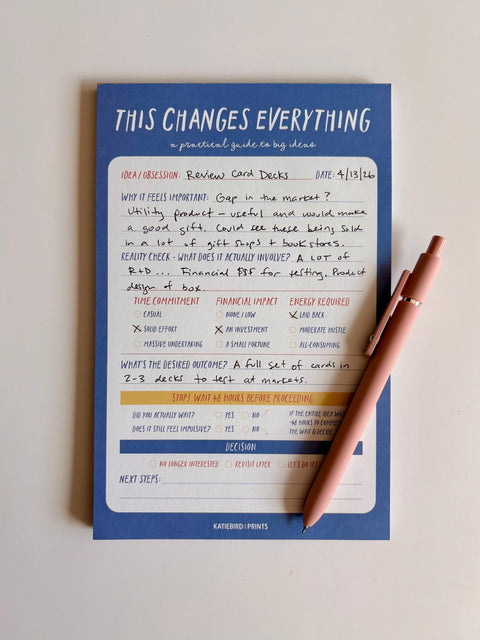 THIS CHANGES EVERYTHING
a practical guide to big ideas
IDEA / OBSESSION: Review Card Decks DATE: 4/13/26
WHY IT FEELS IMPORTANT: Gap in the market?
Utility product – useful and would make
a good gift. Could see these being sold
in a lot of gift shops + bookstores.
REALITY CHECK - WHAT DOES IT ACTUALLY INVOLVE? A LOT OF
R+D... Financial $$$ for testing. Product
design of box.
TIME COMMITMENT FINANCIAL IMPACT ENERGY REQUIRED
CASUAL NONE / LOW LAID BACK
SOLID EFFORT AN INVESTMENT MODERATE HUSTLE
MASSIVE UNDERTAKING A SMALL FORTUNE ALL-CONSUMING
WHAT'S THE DESIRED OUTCOME? A full set of cards in
2-3 decks to test at markets.
STOP! WAIT 48 HOURS BEFORE PROCEEDING
DID YOU ACTUALLY WAIT? YES NO IF THE ENTIRE IDEA
DOES IT STILL FEEL IMPULSIVE? YES NO 48 HOURS TO
THE WAIT & DECIDE
DECISION
NO LONGER INTERESTED REVISIT LATER LET'S DO IT!
NEXT STEPS:
KATIEBIRD PRINTS